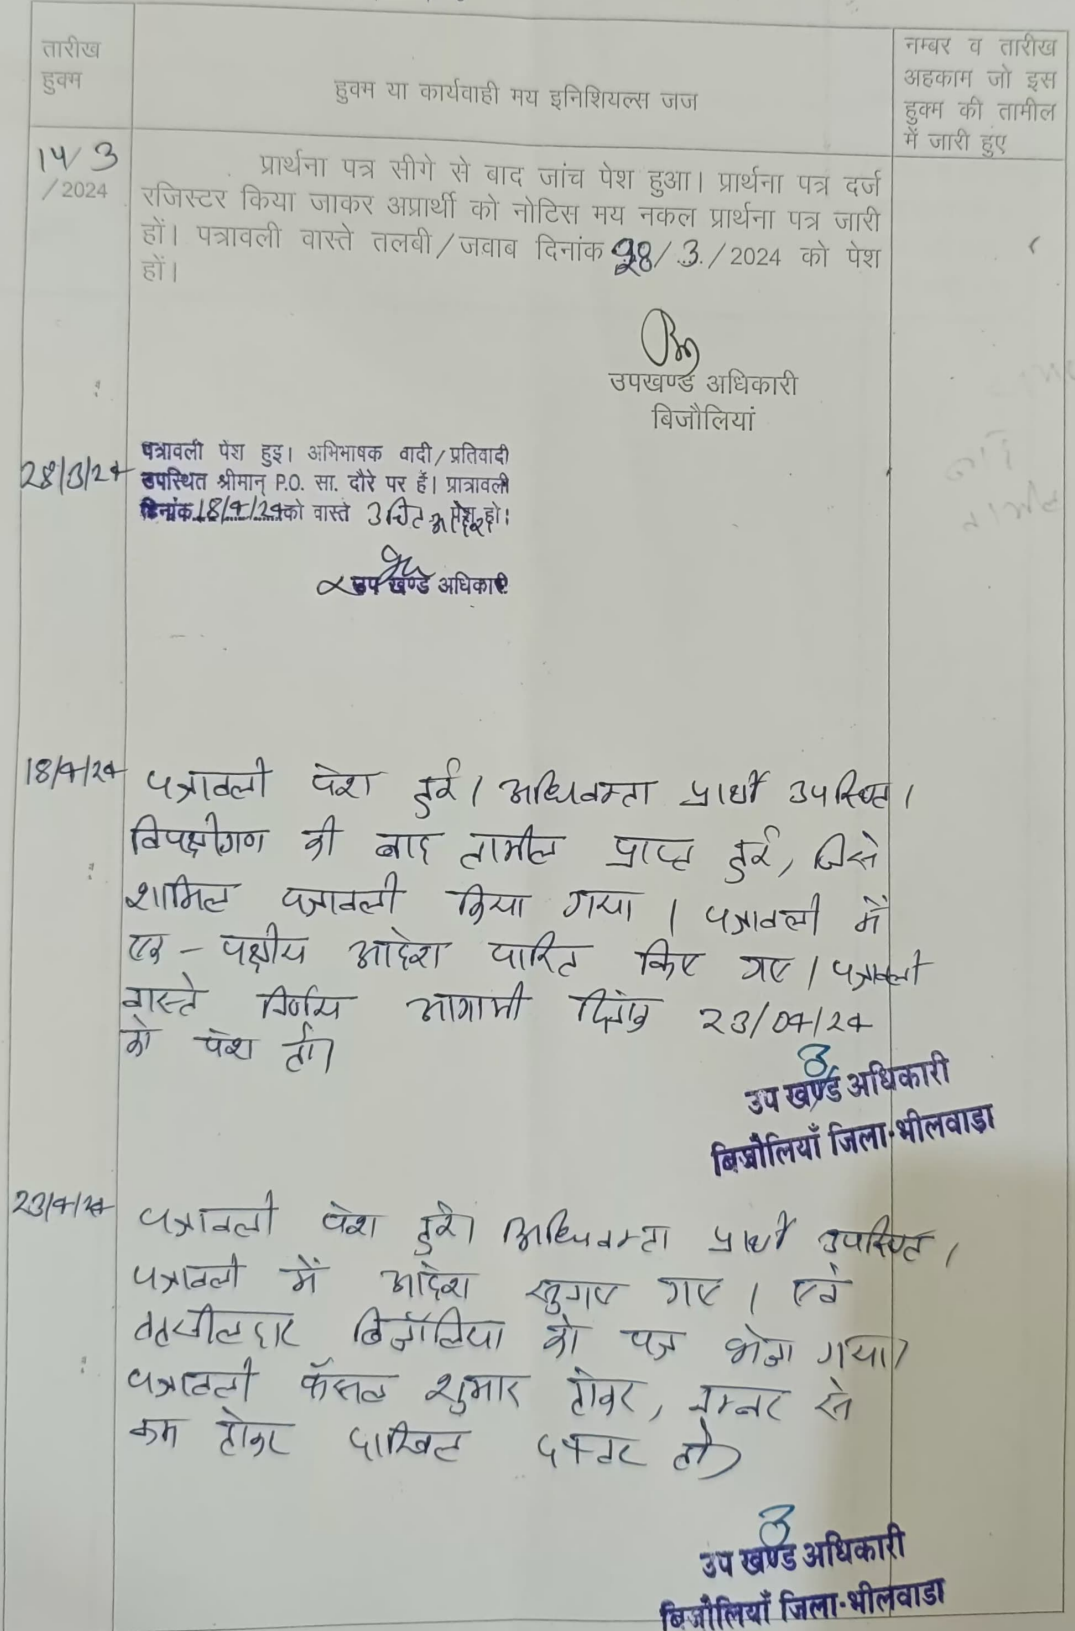 तारीख
हुक्म
हुक्म या कार्यवाही मय इनिशियल्स जज
नम्बर व तारीख
अहकाम जो इस
हुक्म की तामील
में जारी हुए
14/3
/2024
प्रार्थना पत्र सीगे से बाद जांच पेश हुआ। प्रार्थना पत्र दर्ज
रजिस्टर किया जाकर अप्रार्थी को नोटिस मय नकल प्रार्थना पत्र जारी
हों। पत्रावली वास्ते तलबी/जवाब दिनांक 28/3./2024 को पेश
हों।
उपखण्ड अधिकारी
बिजौलियां
28/3/24
पत्रावली पेश हुइ। अभिभाषक वादी/प्रतिवादी
उपस्थित श्रीमान् P.O. सा. दौरे पर हैं। प्रात्रावली
दिनांक 18/4/24 को वास्ते उचित आदेश पेश हो।
उप खण्ड अधिकारी
18/4/24
पत्रावली पेश हुई। अधिवक्ता प्रार्थी उपस्थित।
विपक्षीगण की बाद तामील प्राप्त हुई, जिसे
शामिल पत्रावली किया गया। पत्रावली में
एक-पक्षीय आदेश पारित किए गए। पत्रावली
वास्ते निर्णय आगामी दिनांक 23/04/24
को पेश हो।
उप खण्ड अधिकारी
बिजौलियाँ जिला-भीलवाड़ा
23/4/24
पत्रावली पेश हुई। अधिवक्ता प्रार्थी उपस्थित।
पत्रावली में आदेश सुनाए गए। एवं
तहसीलदार बिजौलिया को पत्र भेजा गया।
पत्रावली फैसल शुमार होकर, नम्बर से
कम होकर दाखिल दफ्तर हो।
उप खण्ड अधिकारी
बिजौलियाँ जिला-भीलवाडा